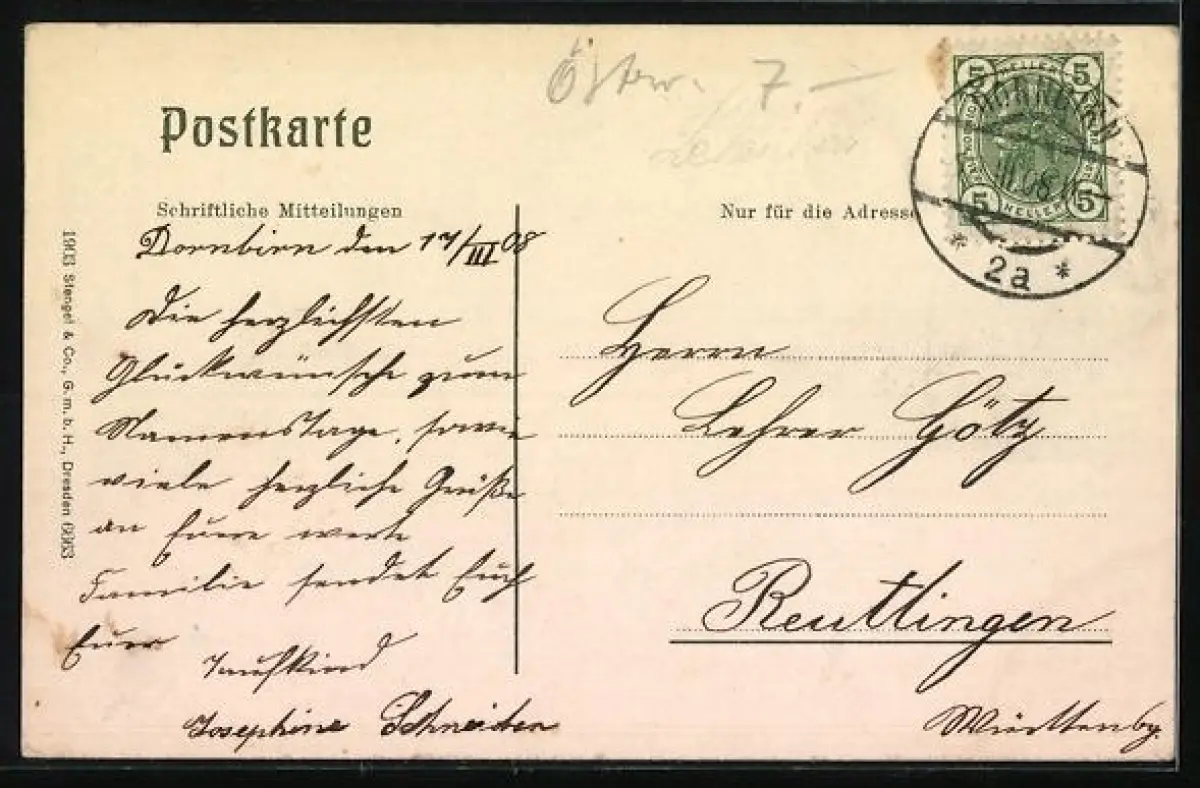 Öster. 7.–
Postkarte
Schriftliche Mitteilungen
Nur für die Adresse
5 HELLER 5
5 HELLER 5
DORNBIRN
III.08
* 2a *
Dornbirn den 17/III 08
Die herzlichsten
Glückwünsche zum
Namenstage, sowie
viele herzliche Grüße
an Euere werte
Familie sendet Euch
Euer
Taufkind
Josephine Schneider
Herrn
Lehrer Götz
Reutlingen
Württenbg.
1903 Stengel & Co., G. m. b. H., Dresden